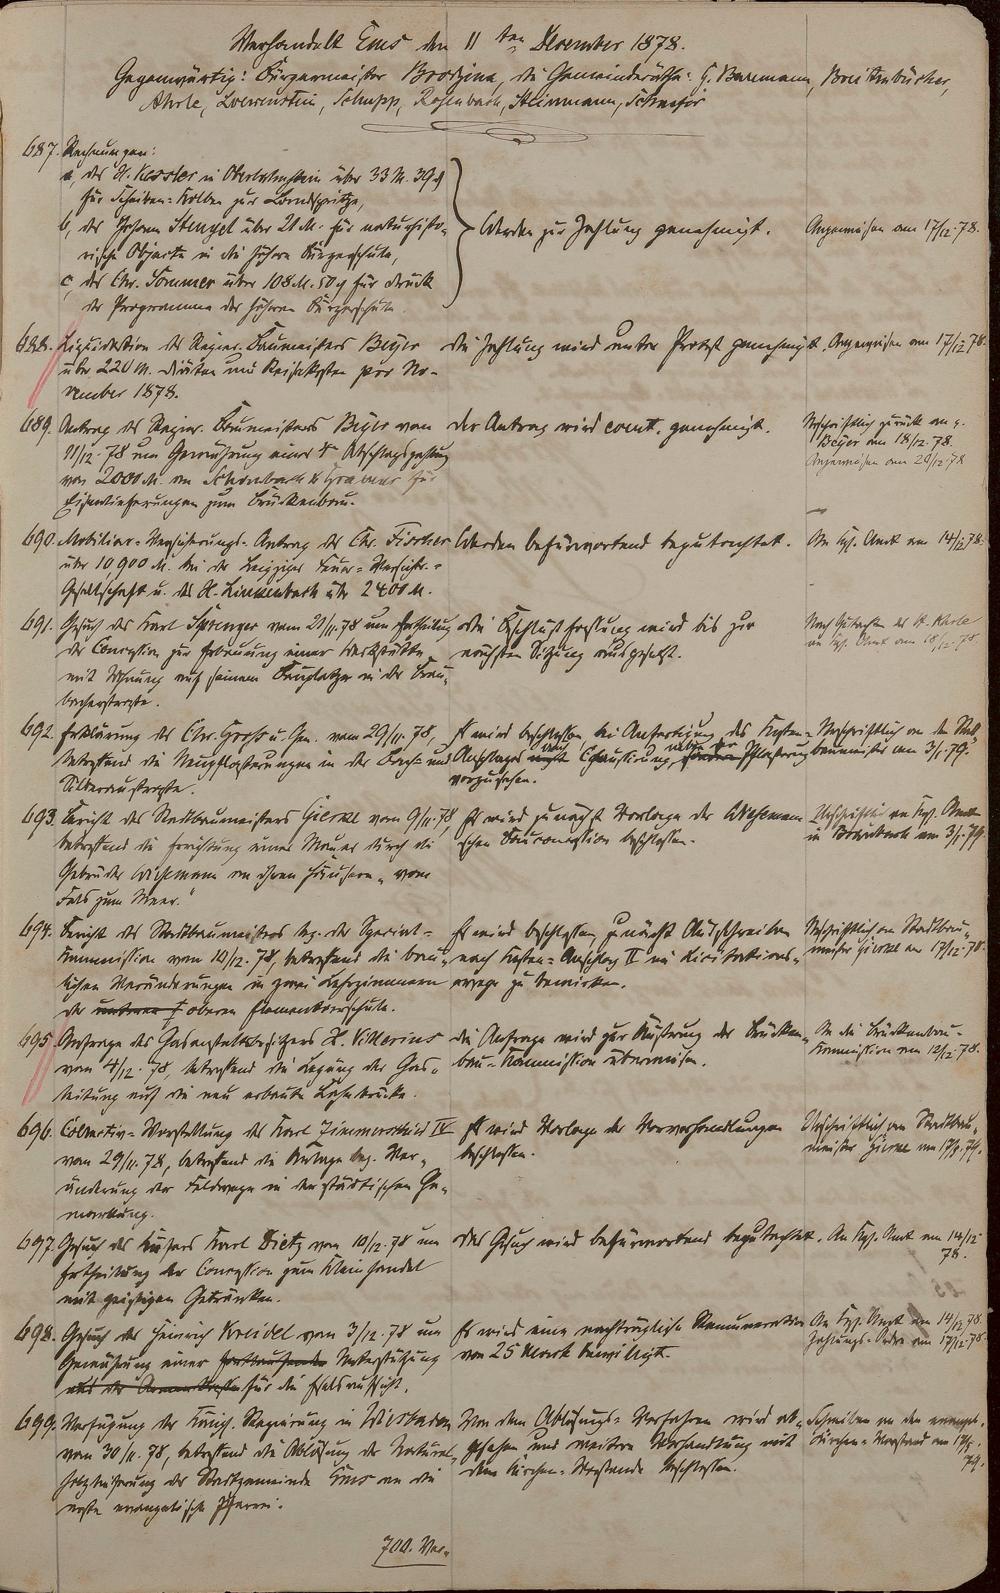 Verhandelt Ems den 11ten December 1878.
Gegenwärtig: Bürgermeister Brodzina, die Gemeinderäthe: G. Balzmann, Breitenbücher,
Ahrle, Loewenstein, Schupp, Rosenbach, Steinmann, Schaefer
687. Rechnungen:
a, des H. Kessler in Oberlahnstein über 33 M. 39 ₰
für Scheiben-Kolben zur Landspritze,
b, des Johann Stengel über 21 M. für naturhisto-
rische Objecte in die höhere Bürgerschule,
c, des Chr. Sommer über 108 M. 50 ₰ für Druck
der Programme der höheren Bürgerschule.
Werden zur Zahlung genehmigt.
Angewiesen am 17/12.78.
688. Liquidation des Regier. Baumeisters Beyer
über 220 M. Diäten und Reisekosten pro No-
vember 1878.
Die Zahlung wird unter Protest genehmigt.
Angewiesen am 17/12 78.
689. Antrag des Regier. Baumeisters Beyer vom
11/12.78 um Gewährung einer Abschlagszahlung
von 2000 M. an Schönbach & für
Eisenlieferungen zum Brückenbau.
Der Antrag wird event. genehmigt.
Urschriftlich zurück an H.
Beyer am 18/12.78.
Angewiesen am 20/12.78
690. Mobiliar-Versicherungs-Antrag des Chr. Fischer
über 10,900 M. bei der Leipziger Feuer-Versicher.-
Gesellschaft u. des H. Linkenbach über 2400 M.
Werden befürwortend begutachtet.
An Kgl. Amt am 14/12 78.
691. Gesuch des Karl Sprenger vom 21/11.78 um Ertheilung
der Concession zur Erbauung einer Werkstätte
mit Wohnung auf seinem Bauplatze in der Brau-
bacherstraße.
Die Beschlußfassung wird bis zur
nächsten Sitzung ausgesetzt.
Nach Gutachten des H. Ahrle
an Kgl. Amt am 18/12.78
692. Erklärung des Chr. Groß u. Gen. vom 29/11.78,
betreffend die Neupflasterungen in der Bach- und
Silberaustraße.
Es wird beschlossen bei Anfertigung des Kosten-
Anschlages auch Chaussirung, neben der Pflasterung
vorzusehen.
Urschriftlich an den Stadt-
baumeister am 3/1.79.
693. Bericht des Stadtbaumeisters Gierke vom 9/12.78,
betreffend die Errichtung einer Mauer durch die
Gebrüder Wiesemann an ihren Häusern „vom
Fels zum Meer.“
Es wird zunächst Vorlage der Wiesemann-
schen Bauconcession beschlossen.
Urschriftlich an Kgl. Amt
am 3/1.79.
694. Bericht des Stadtbaumeisters bez. der Special-
Kommission vom 10/12.78, betreffend die bau-
lichen Veränderungen in zwei Lehrzimmern
der oberen Elementarschule.
Es wird beschlossen, zunächst Ausschreiben
nach Kosten-Anschlag II im Licitations-
wege zu bewirken.
Urschriftlich an Stadtbau-
meister Gierke am 17/12 78.
695. Anfrage des Gasanstaltsbesitzers X. Vitterius
vom 4/12.78, betreffend die Legung der Gas-
leitung auf die neu erbaute Lahnbrücke.
Die Anfrage wird zur Äußerung der Brücken-
bau-Kommission überwiesen.
An die Brückenbau-
Kommission am 12/12.78.
696. Collectiv-Vorstellung des Karl Zimmerschied IV
vom 29/11.78, betreffend die Anlage bez. Ver-
änderung der Feldwege in der städtischen Ge-
markung.
Es wird Vorlage der Vorverhandlungen
beschlossen.
Urschriftlich an Stadtbau-
meister Gierke am 17/1.79.
697. Gesuch des Küfers Karl Dietz vom 10/12.78 um
Ertheilung der Concession zum Kleinhandel
mit geistigen Getränken.
Das Gesuch wird befürwortend begutachtet.
An Kgl. Amt am 14/12
78.
698. Gesuch des Heinrich Kreidel vom 3/12.78 um
Gewährung einer fortlaufenden Unterstützung
aus der Armenkasse für die Eselsaufsicht.
Es wird eine nachträgliche Remuneration
von 25 Mark bewilligt.
An Kgl. Amt am 14/12 78.
Zahlungs-Ordre am 17/12.78.
699. Verfügung der Königl. Regierung in Wiesbaden
vom 30/11.78, betreffend die Ablösung der Natural-
holzlieferung der Stadtgemeinde Ems an die
erste evangelische Pfarrei.
Von dem Ablösungs-Verfahren wird ab-
gesehen und weitere Verhandlung mit
dem Kirchen-Vorstande beschlossen.
Schreiben an den evangel.
Kirchen-Vorstand am
79.
700. Ver-